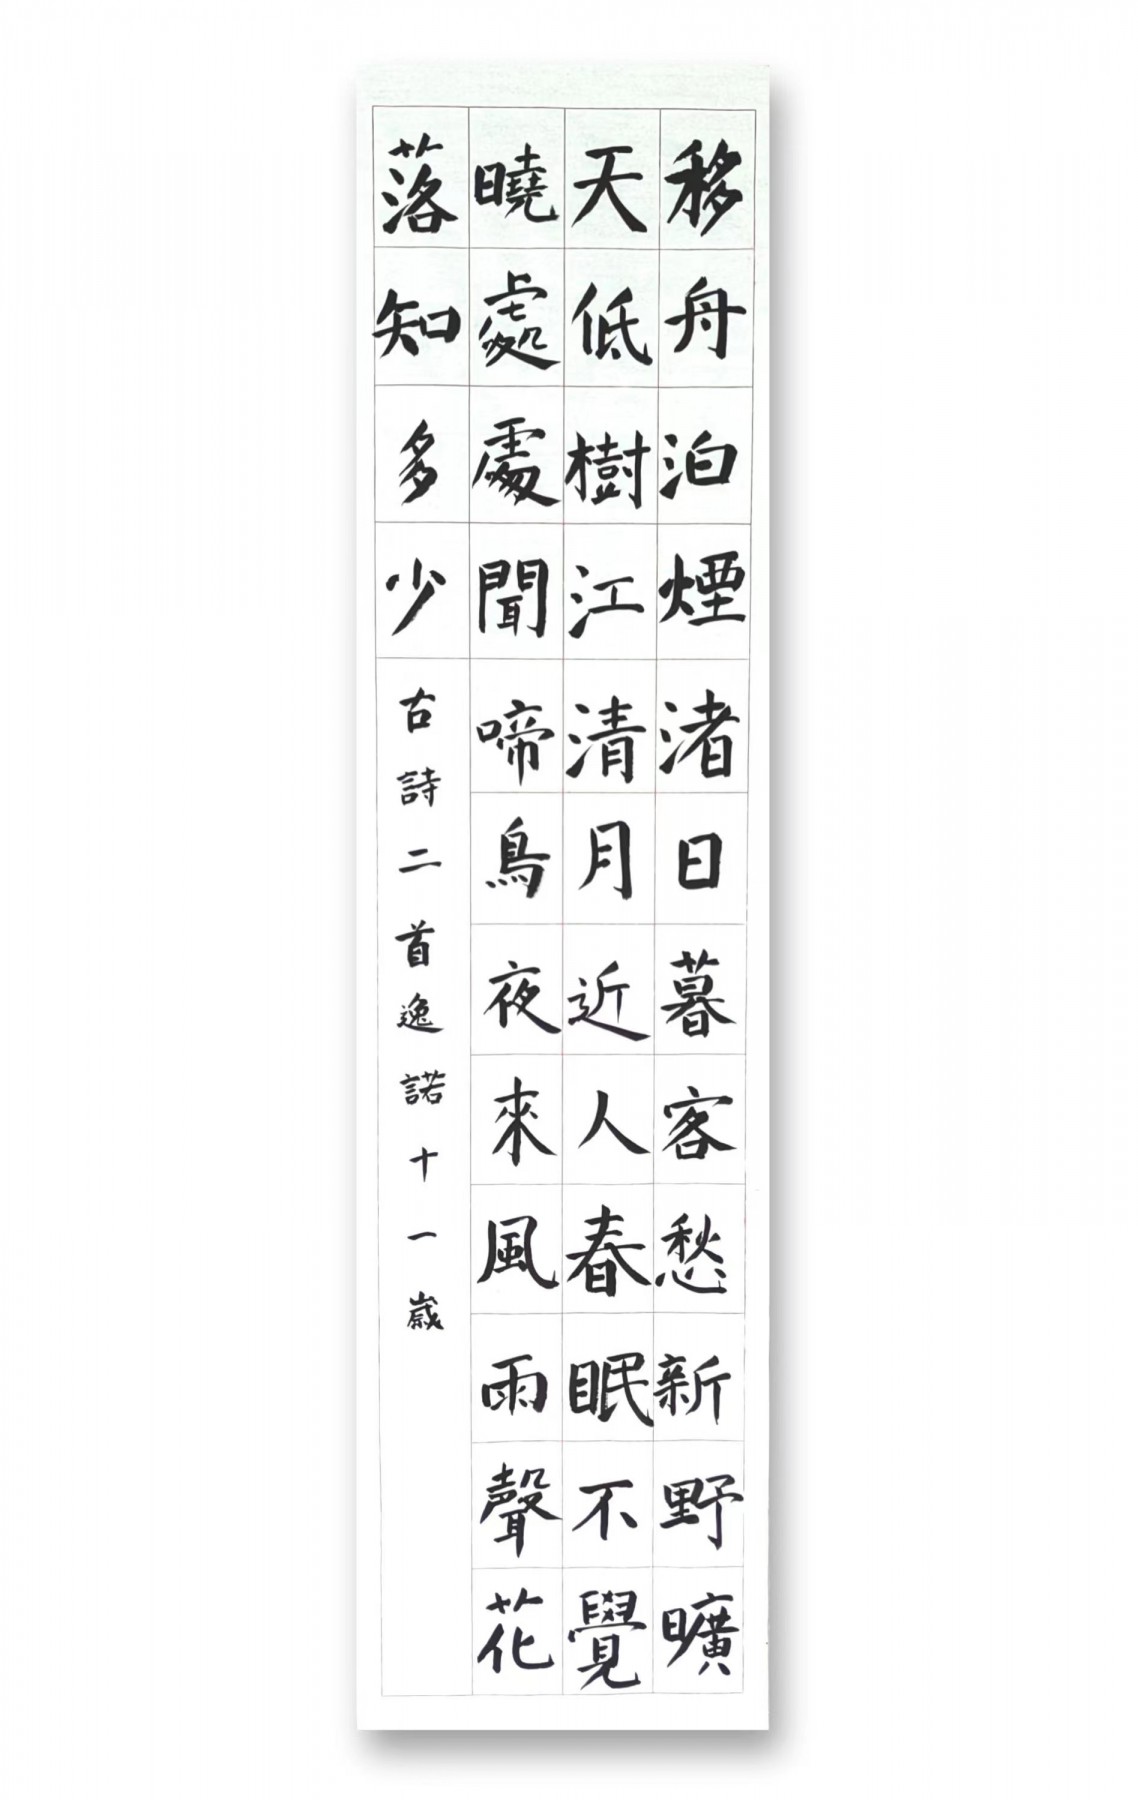 移舟泊煙渚日暮客愁新野曠
天低樹江清月近人春眠不覺
曉處處聞啼鳥夜來風雨聲花
落知多少
古詩二首逸諾十一歲